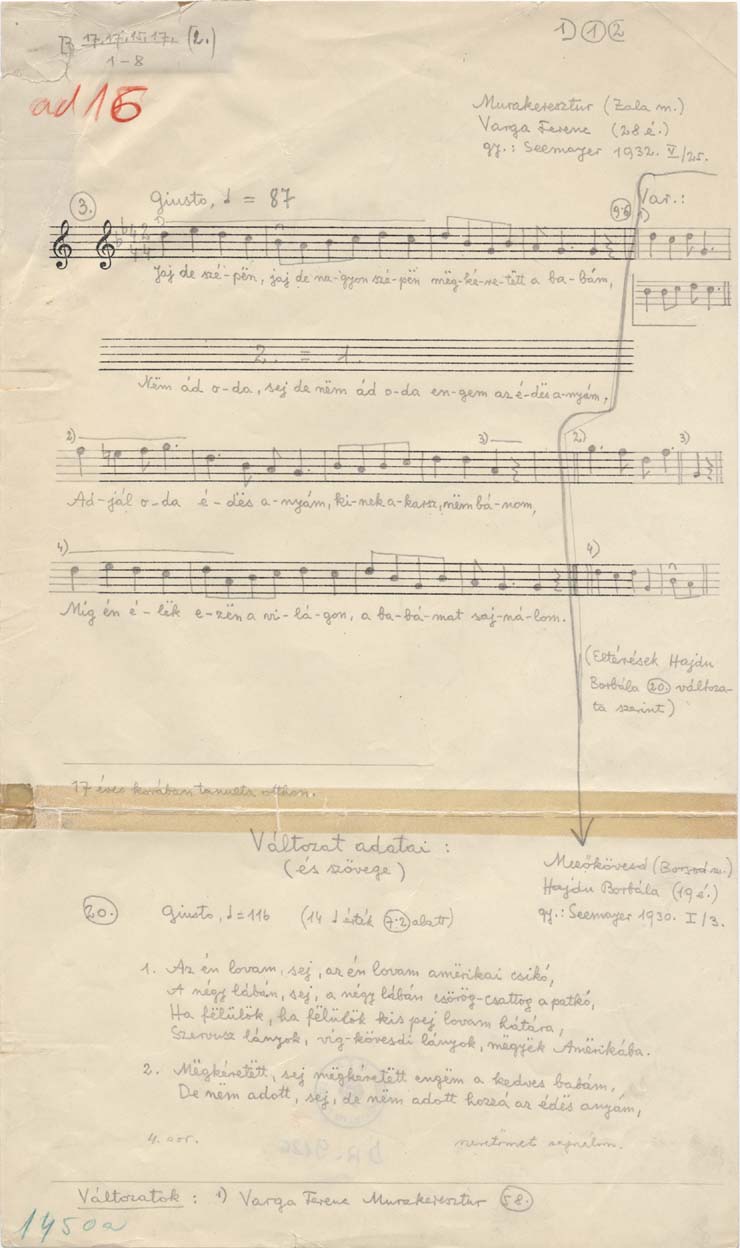 B 17.17.15.17. (2.)
1-8
1) ① ②
ad 16
Murakeresztur (Zala m.)
Varga Ferenc (28 é.)
gy.: Seemayer 1932. V/25.
3.
Giusto, = 87
Var.:
1)
1)
Jaj de szé-pën, jaj de na-gyon szé-pën mëg-ké-re-tëtt a ba-bám,
2. = 1.
Nëm ád o-da, sej de nëm ád o-da en-gem az é-dës a-nyám,
2)
3)
2)
3)
Ad-jál o-da é-dës a-nyám, ki-nek a-karsz, nëm bá-nom,
4)
4)
Míg én é-lëk e-zën a vi-lá-gon, a ba-bá-mat saj-ná-lom.
(Eltérések Hajdu
Borbála 20. változa-
ta szerint)
17 éves korában tanulta otthon.
Változat adatai:
(és szövege)
Mezőkövesd (Borsod m.)
Hajdu Borbála (19 é.)
gy.: Seemayer 1930. I/3.
20.
Giusto, = 116 (14 érték 7·2 alatt)
1. Az én lovam, sej, az én lovam amërikai csikó,
A négy lábán, sej, a négy lábán csörög-csattog a patkó,
Ha fëlülök, ha fëlülök kis pej lovam hátára,
Szervusz lányok, víg-kövesdi lányok, mëgyëk Amërikába.
2. Mëgkéretëtt, sej mëgkéretëtt engëm a kedves babám,
De nëm adott, sej, de nëm adott hozzá az édës anyám,
4. sor. szeretőmet sajnálom.
Változatok: 1) Varga Ferenc Murakeresztur 58.
1450a